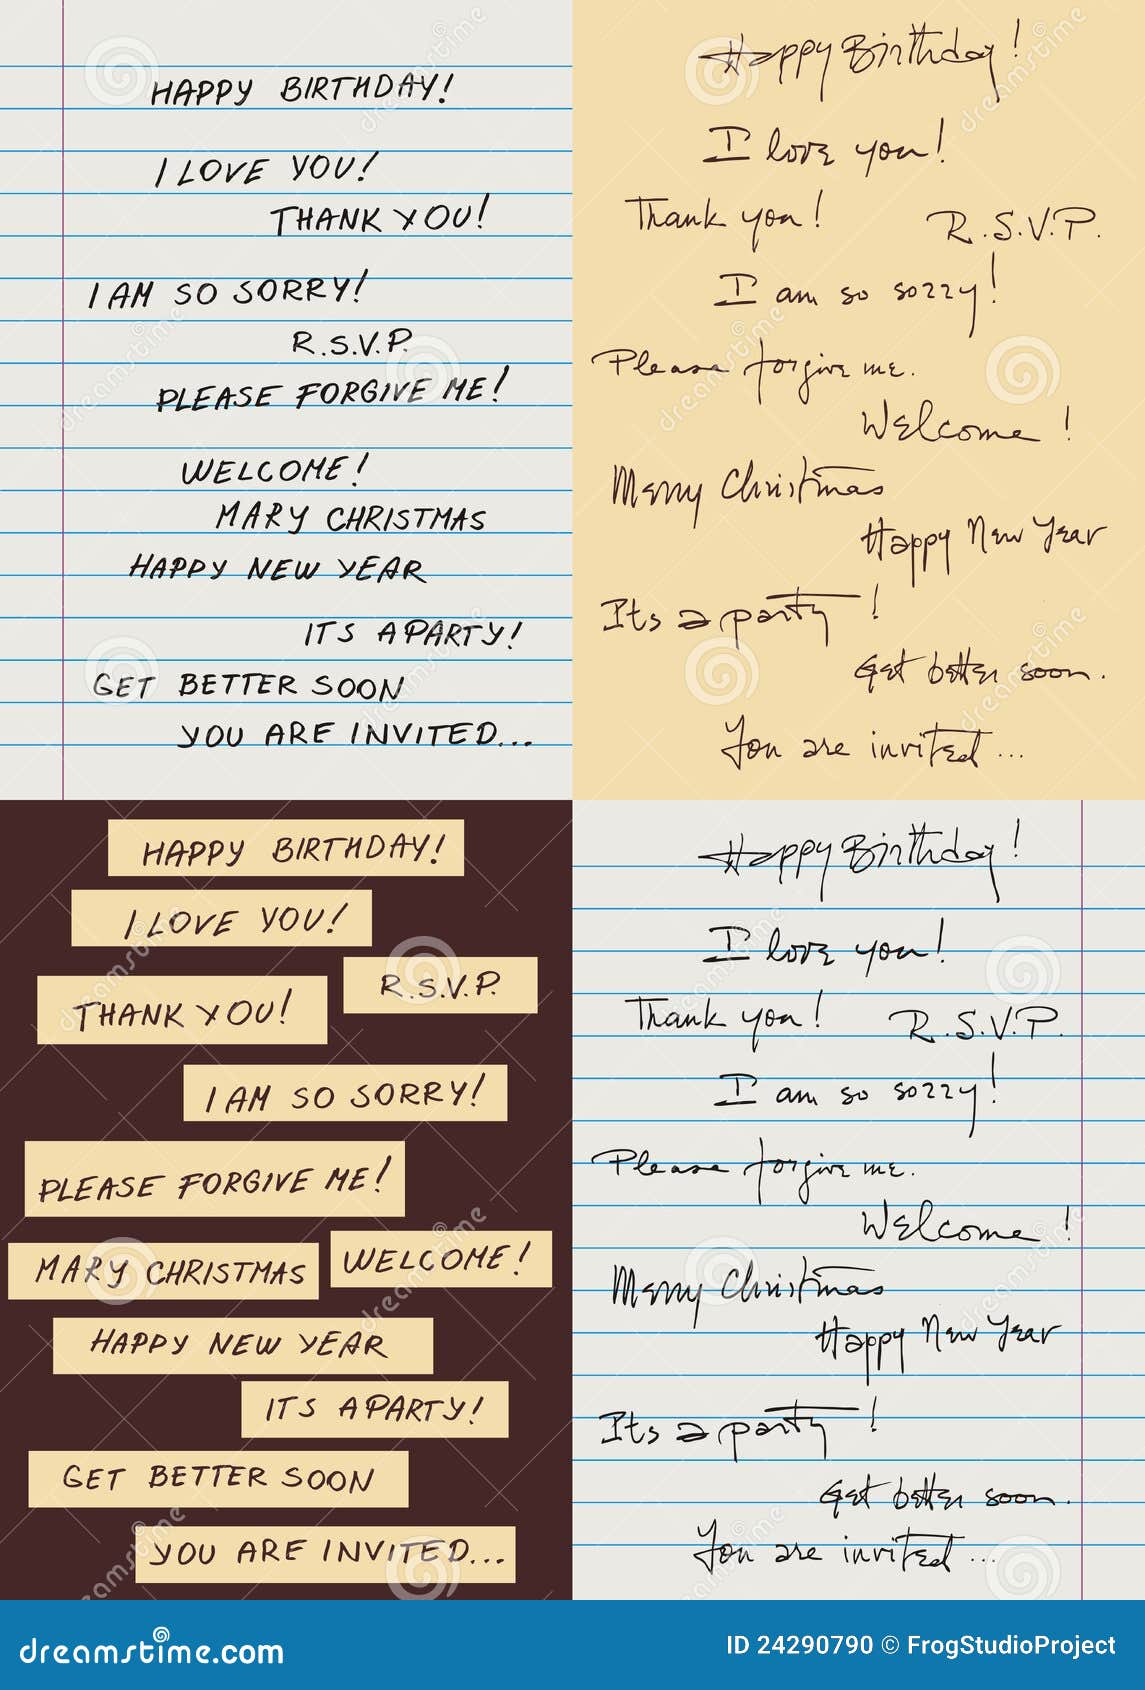 HAPPY BIRTHDAY!
I LOVE YOU!
THANK YOU!
I AM SO SORRY!
R.S.V.P.
PLEASE FORGIVE ME!
WELCOME!
MARY CHRISTMAS
HAPPY NEW YEAR
ITS A PARTY!
GET BETTER SOON
YOU ARE INVITED...
Happy Birthday!
I love you!
Thank you! R.S.V.P.
I am so sorry!
Please forgive me.
Welcome!
Merry Christmas
Happy New Year
Its a party!
Get better soon.
You are invited...
HAPPY BIRTHDAY!
I LOVE YOU!
R.S.V.P.
THANK YOU!
I AM SO SORRY!
PLEASE FORGIVE ME!
MARY CHRISTMAS
WELCOME!
HAPPY NEW YEAR
ITS A PARTY!
GET BETTER SOON
YOU ARE INVITED...
Happy Birthday!
I love you!
Thank you! R.S.V.P.
I am so sorry!
Please forgive me.
Welcome!
Merry Christmas
Happy New Year
Its a party!
Get better soon.
You are invited...
dreamstime.com
ID 24290790 © FrogStudioProject